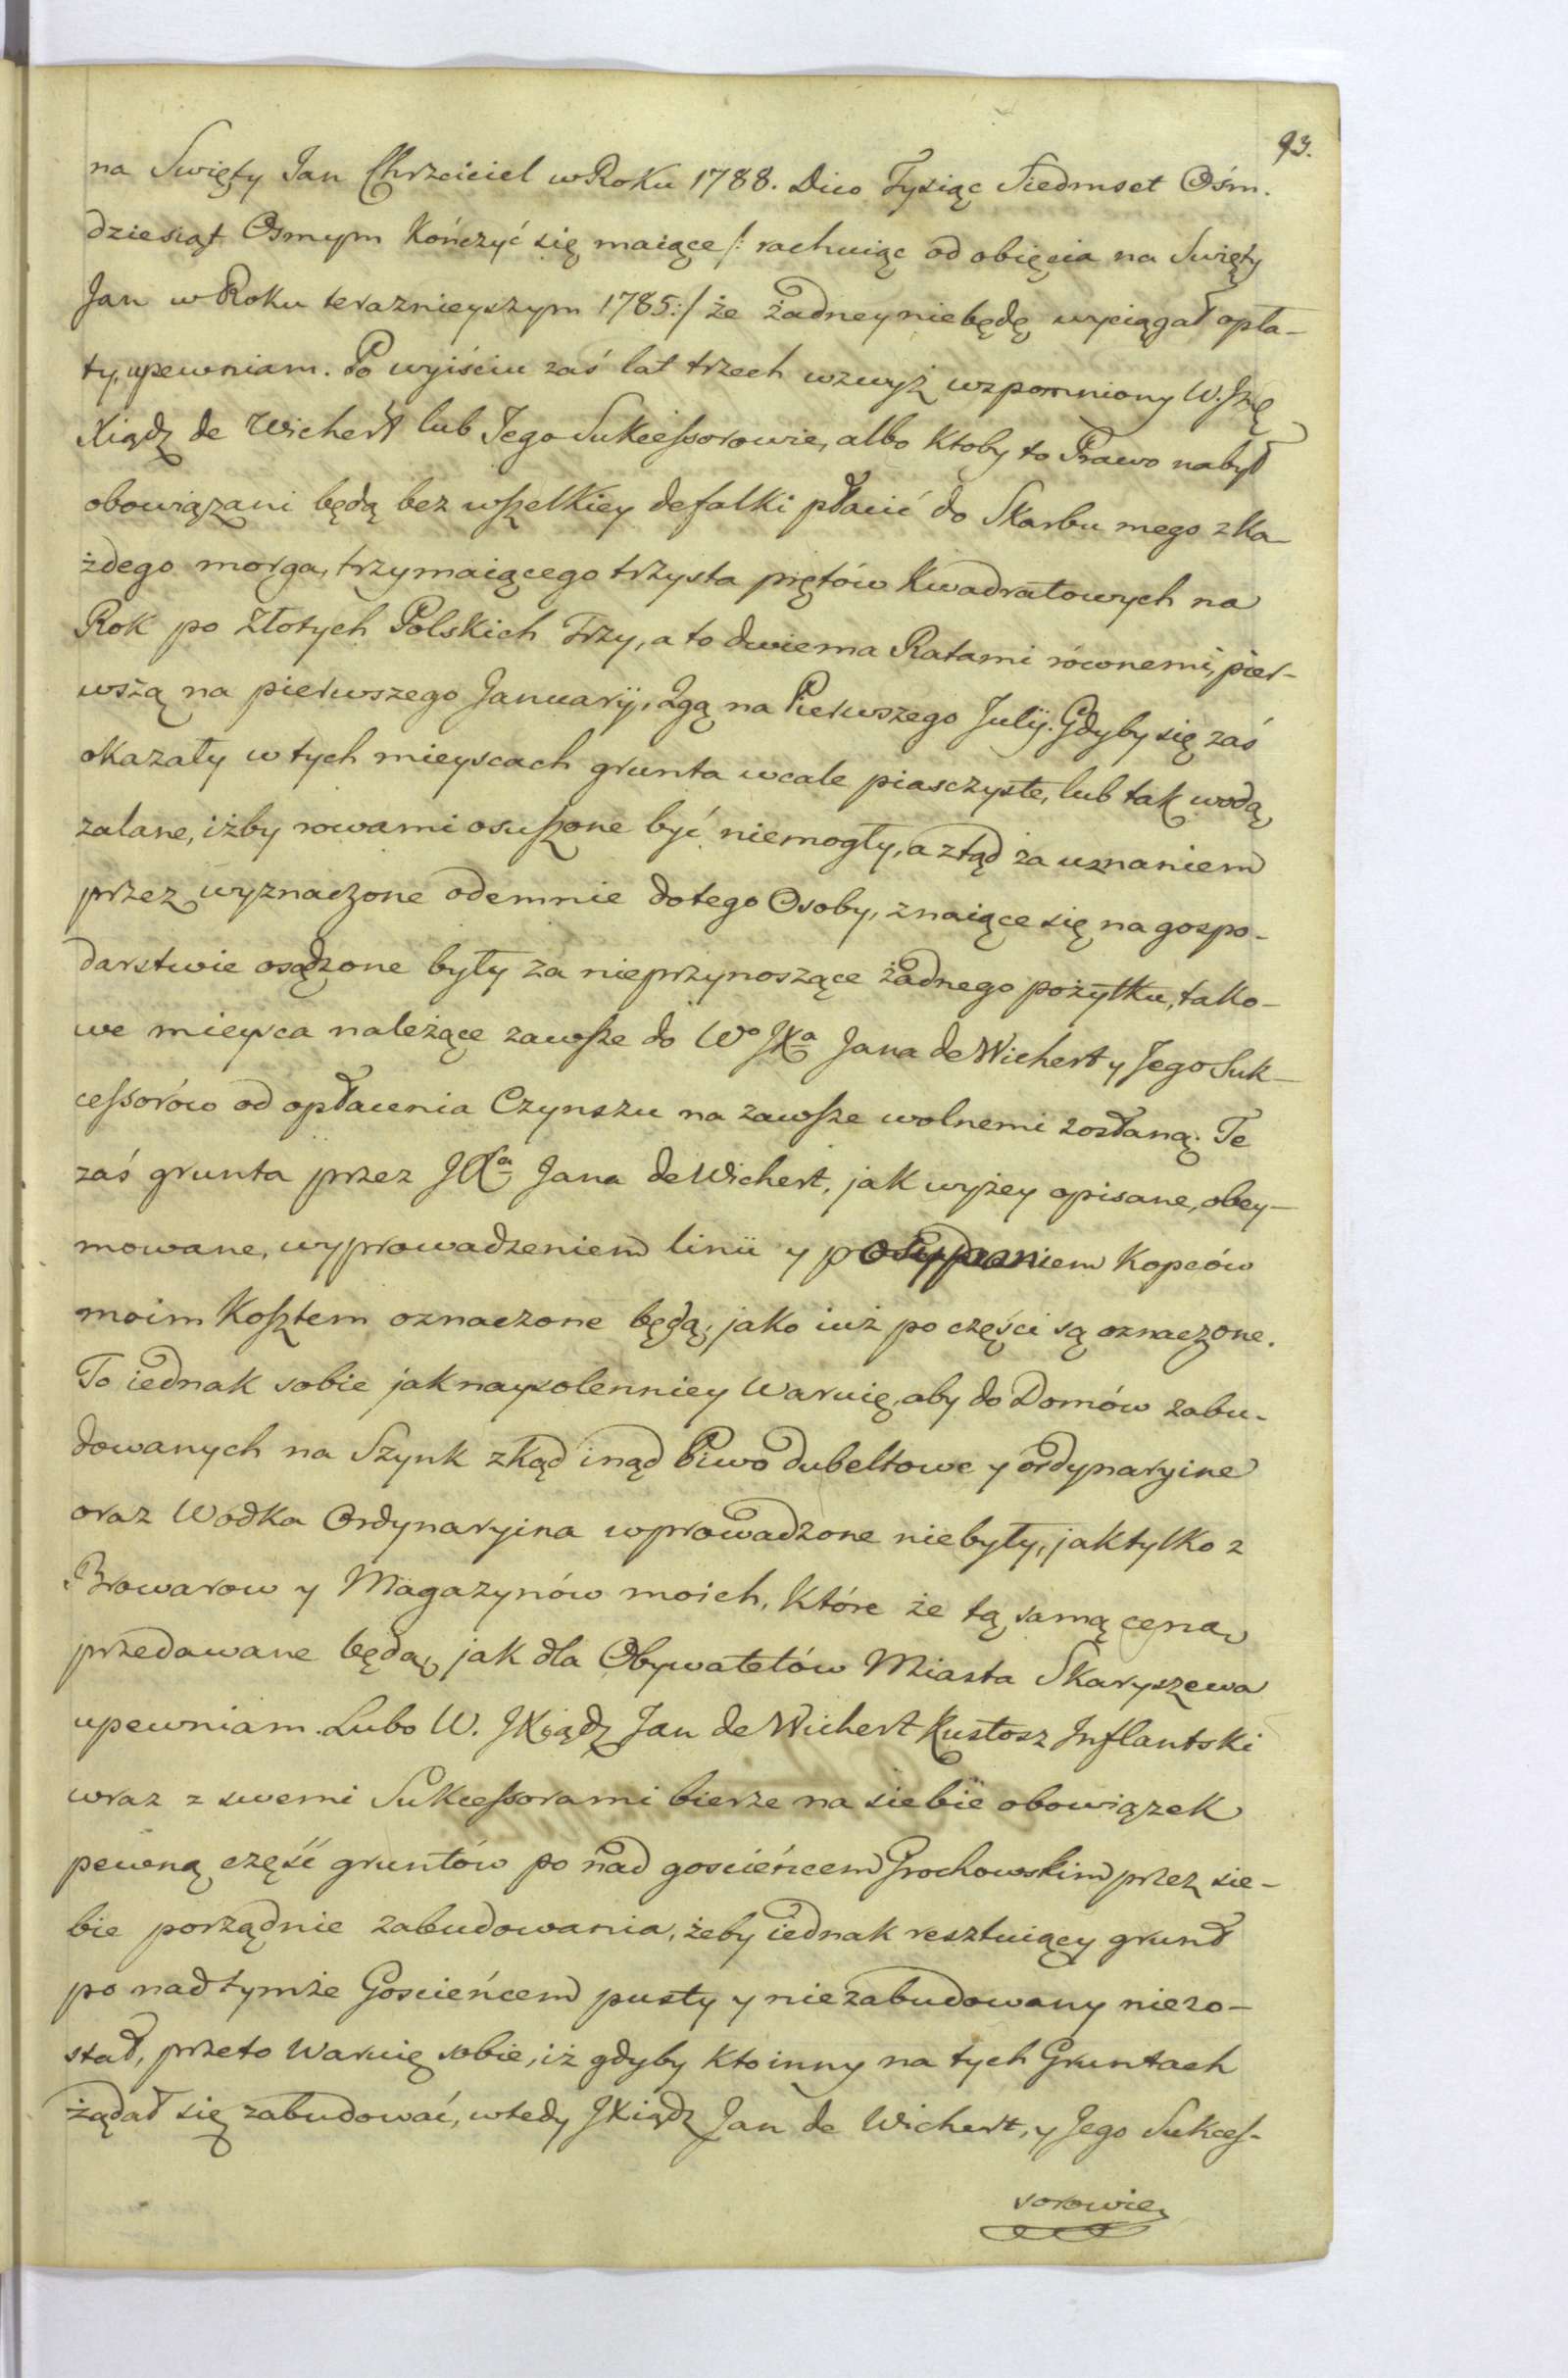 93.
na Swięty Jan Chrzciciel w Roku 1788. Dico Tysiąc Siedmset Ośm.
dziesiąt Osmym kończyć się maiące /: rachuiąc od obięcia na Swięty
Jan w Roku teraznieyszym 1785:/ że żadney niebędę wyciągał opła-
ty, upewniam. Po wyiściu zaś lat trzech wzwyż wzpomniony W.
Xiądz de Wichert lub Jego Sukcessorowie, albo ktoby to Prawo nabył
obowiązani będą bez wszelkiey defalki płacić do Skarbu mego z ka-
żdego morga, trzymaiącego trzysta prętów kwadratowych na
Rok po Złotych Polskich Trzy, a to dwiema Ratami równemi, pier-
wszą na pierwszego Januarij, 2gą na Pierwszego Julij. Gdyby się zaś
okazały w tych mieyscach grunta wcale piasczyste, lub tak wodą
zalane, iżby rowami osuszone być niemogły, a ztąd za uznaniem
przez wyznaczone odemnie dotego Osoby, znaiące się na gospo-
darstwie osądzone były za nieprzynoszące żadnego pożytku, tako-
we mieysca należące zawsze do Wo JXa Jana de Wichert y Jego Suk-
cessorów od opłacenia Czynszu na zawsze wolnemi zostaną. Te
zaś grunta przez JXa Jana de Wichert, jak wyżey opisane, obey-
mowane, wyprowadzeniem linii y posypaniem Kopców
moim Kosztem oznaczone będą, jako iuż po części są oznaczone.
To iednak sobie jak naysolenniey waruię, aby do Domów zabu-
dowanych na Szynk zkąd inąd Piwo dubeltowe y ordynaryine
oraz Wodka Ordynaryina wprowadzone niebyły, jak tylko z
Browarow y Magazynów moich, które że tą samą ceną
przedawane będą, jak dla Obywatelów Miasta Skaryszewa
upewniam. Lubo W. JXiądz Jan de Wichert Kustosz Inflantski
wraz z swemi Sukcessorami bierze na siebie obowiązek
pewną część gruntów po nad gościńcem Grochowskim przez sie-
bie porządnie zabudowania, żeby iednak resztuiący grunt
po nad tymże Gościeńcem pusty y niezabudowany niezo-
stał, przeto waruię sobie, iż gdyby kto inny na tych Gruntach
żądał się zabudować, wtedy JXiądz Jan de Wichert, y Jego Sukces-
sorowie